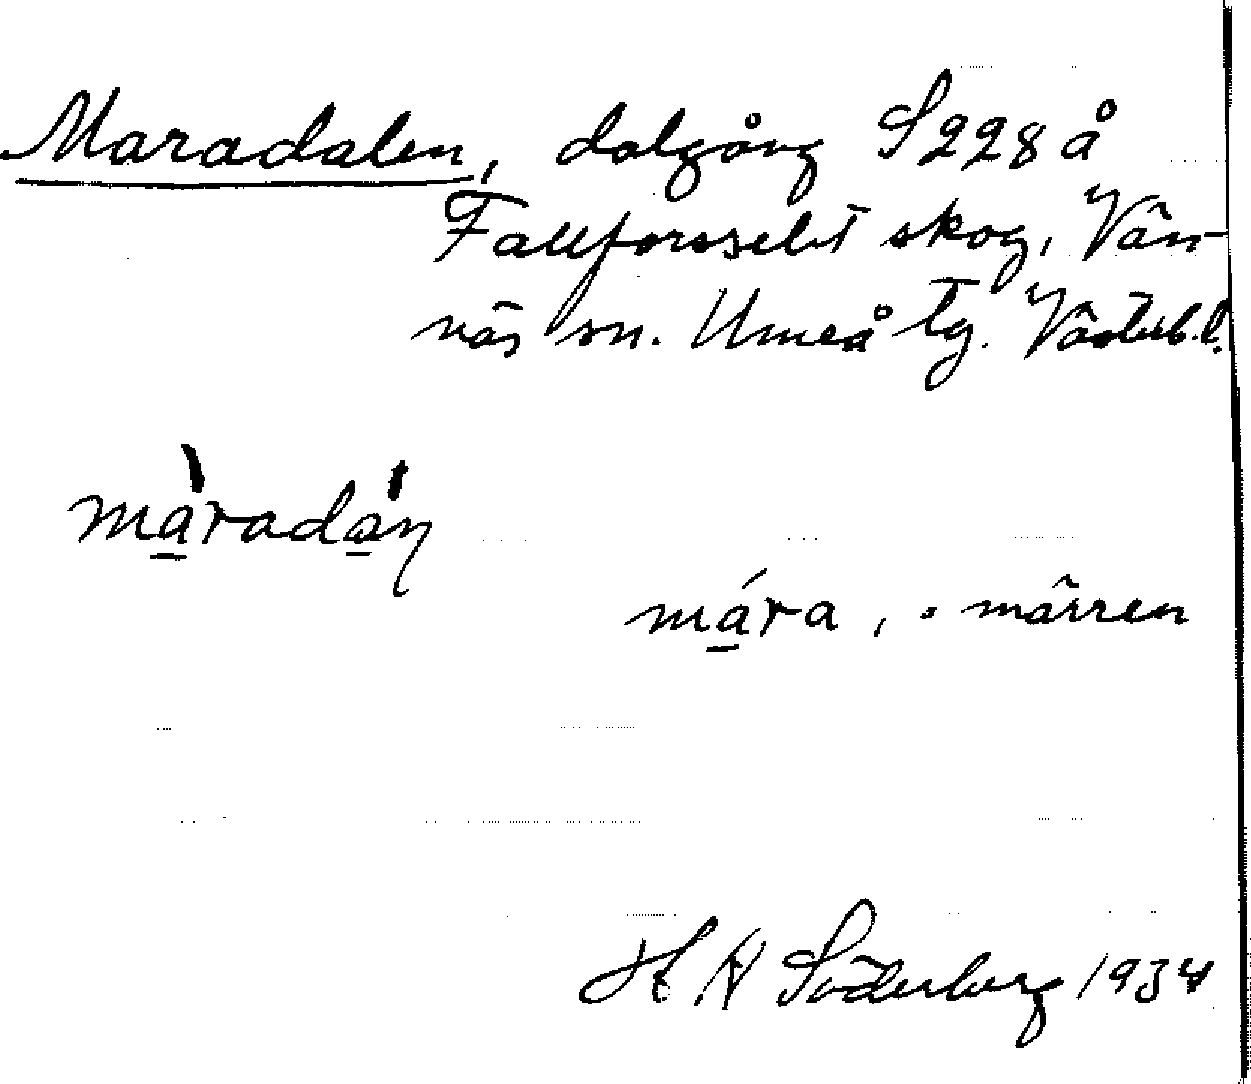 Maradalen, dalgång S 228 å
Fallforsselet skog, Vän-
näs sn. Umeå tg. Västerb. l.
màradáņ
mára, • märren
H A Söderberg 1934